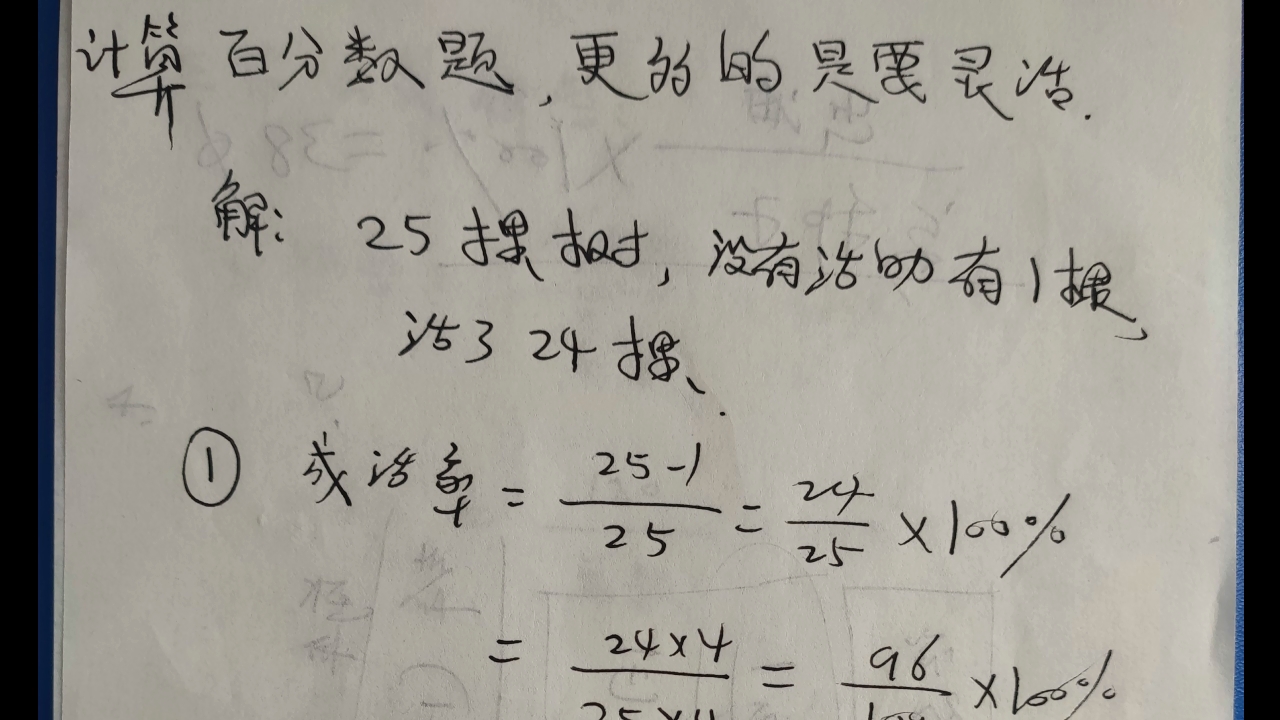 计算百分数题,更多的是要灵活.
解: 25棵树,没有活的有1棵、
活了24棵、.
① 成活率 = 25-1/25 = 24/25 ×100%
= 24×4/25×4 = 96/100 ×100%